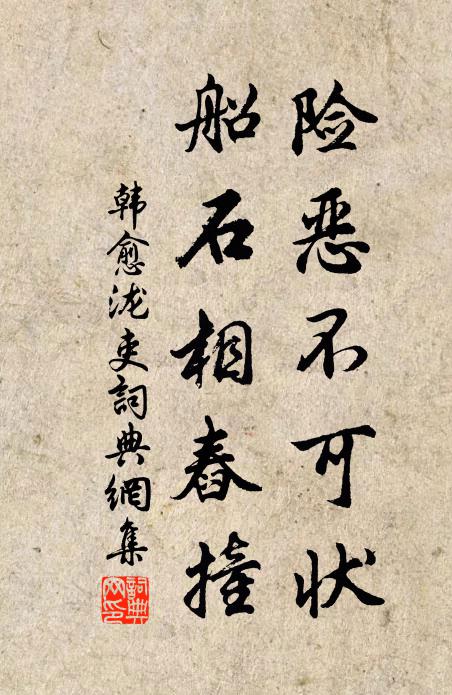 险恶不可状
船石相舂撞
韩愈泷吏詞典網集
詞典网印